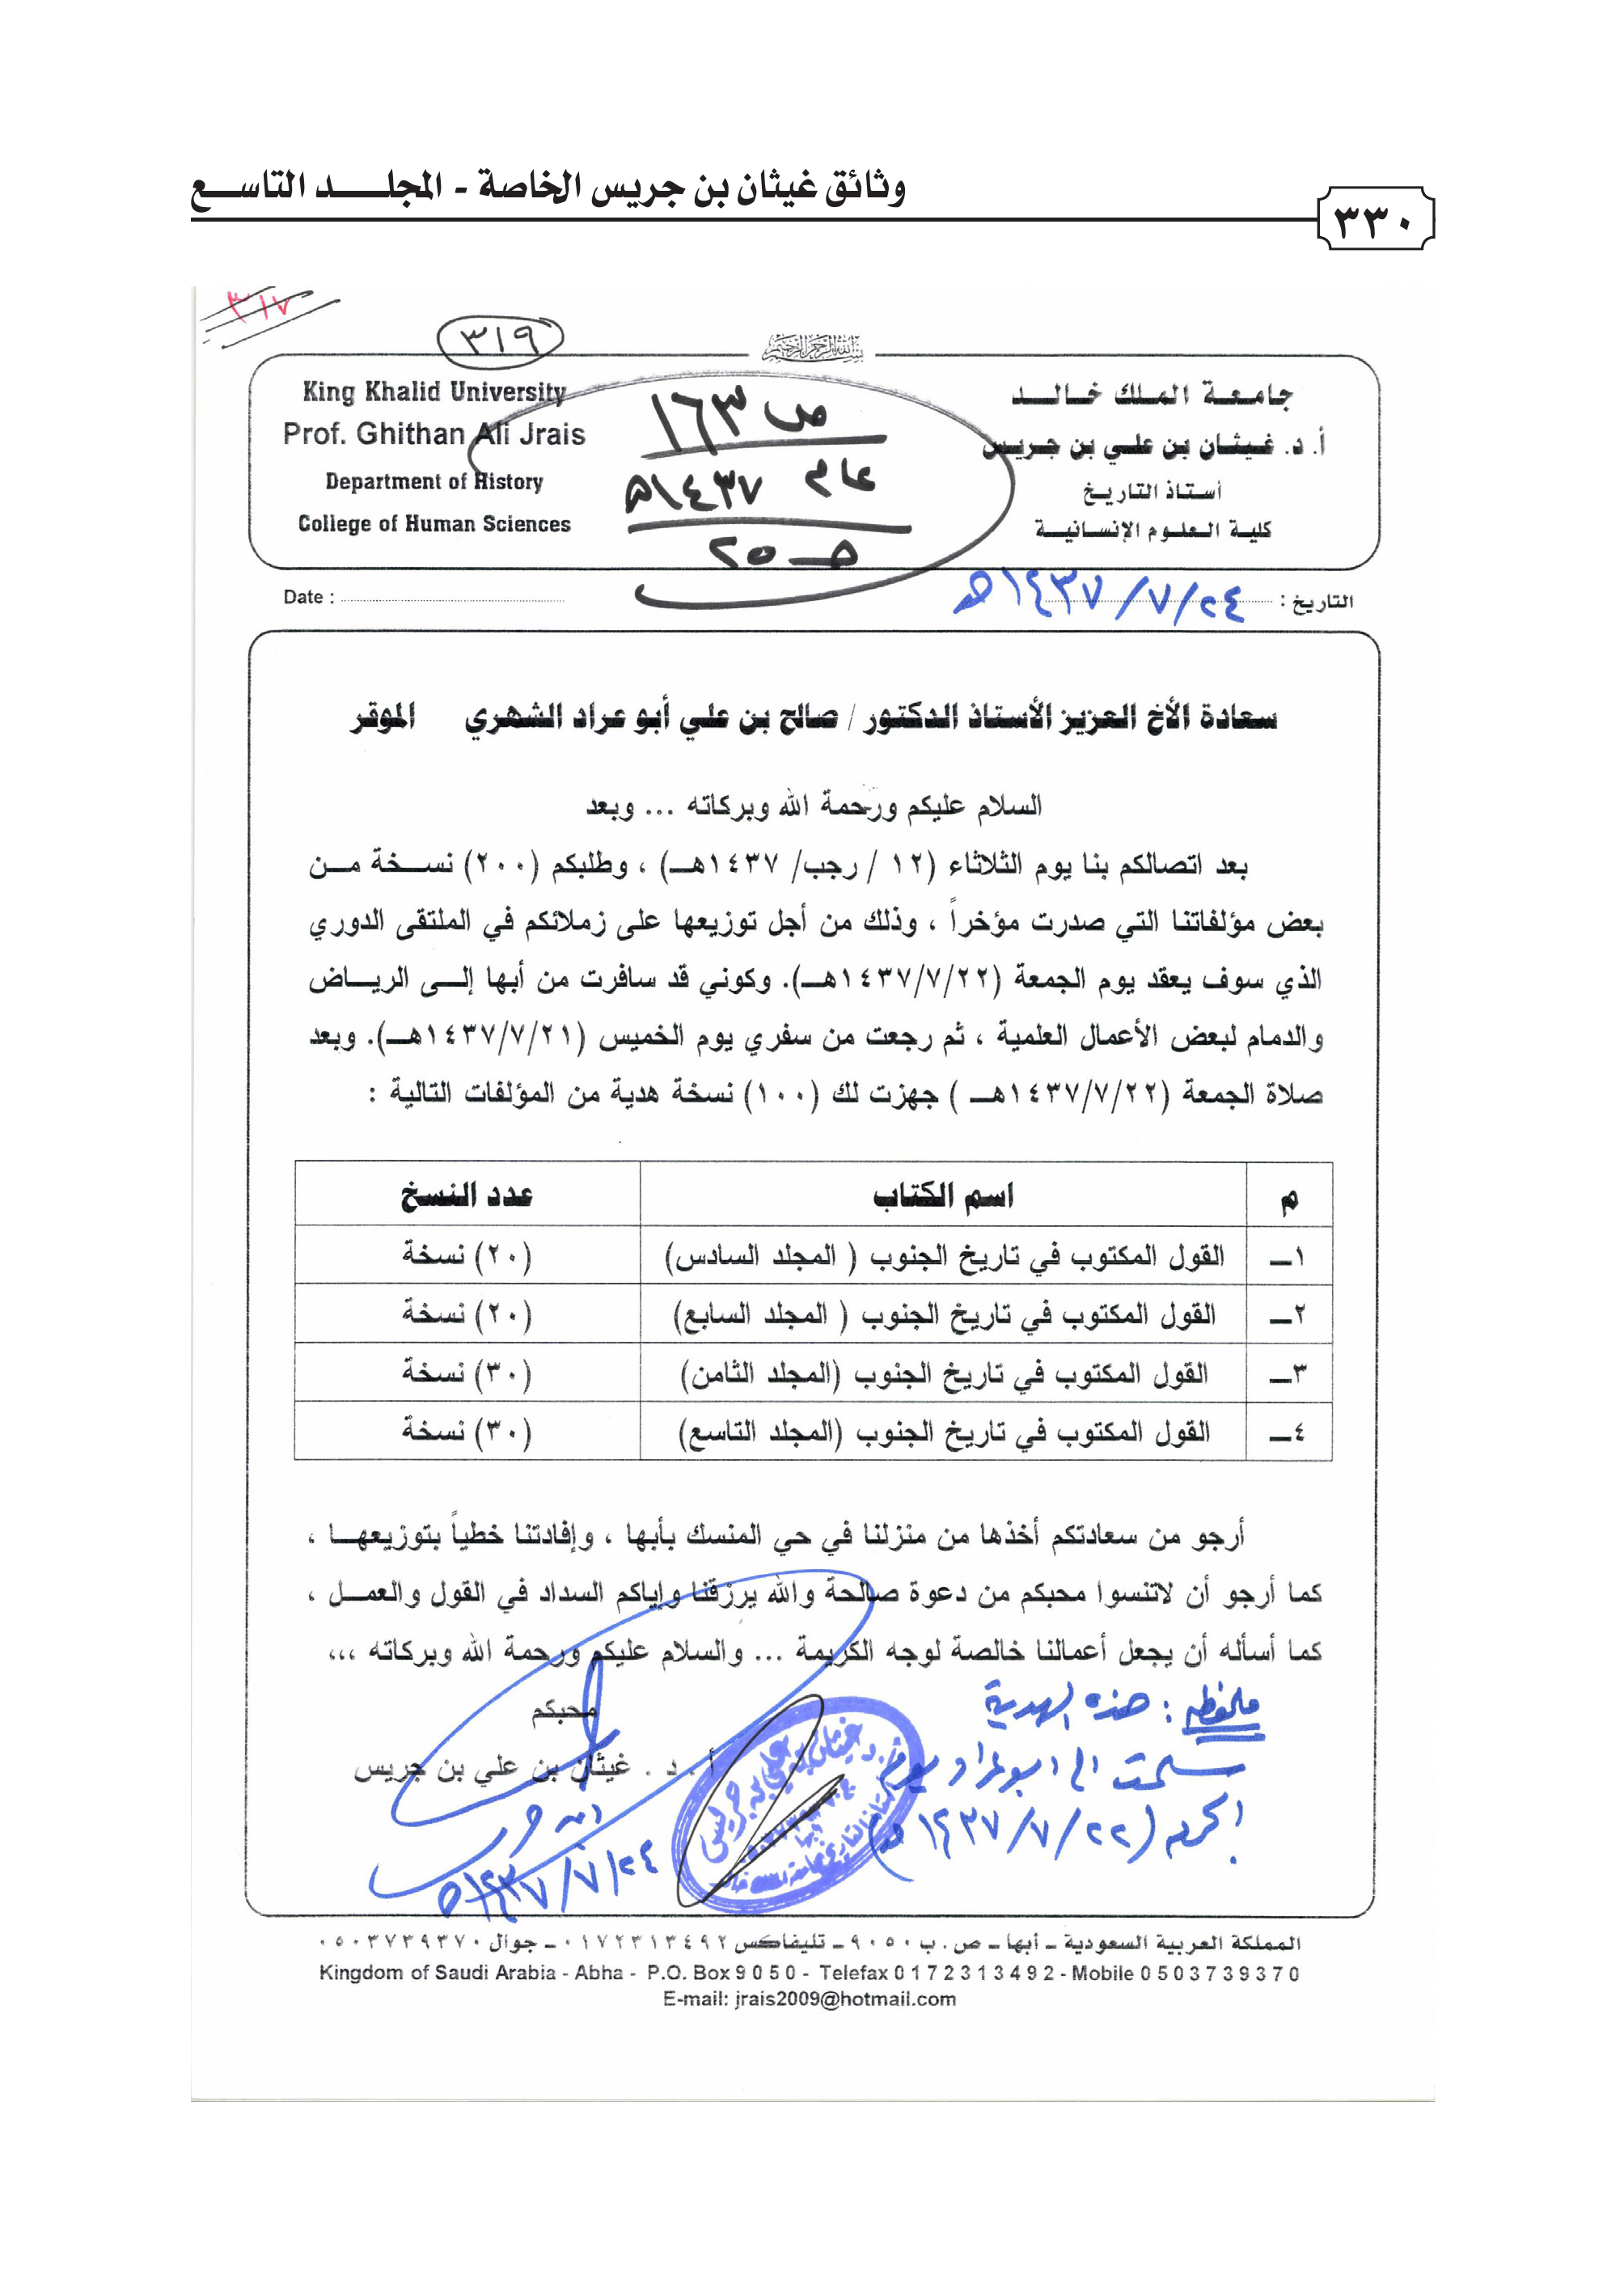 وثائق غيثان بن جريس الخاصة - المجلد التاسع
٣٣٠
٣١٧
٣١٩
بسم الله الرحمن الرحيم
King Khalid University
Prof. Ghithan Ali Jrais
Department of History
College of Human Sciences
ص ١٦٣
عام ١٤٣٧هـ
جامعة الملك خالد
أ. د. غيثان بن علي بن جريس
أستاذ التاريخ
كلية العلوم الإنسانية
Date :
التاريخ : ٢٤/٧/١٤٣٧هـ
سعادة الأخ العزيز الأستاذ الدكتور / صالح بن علي أبو عراد الشهري الموقر
السلام عليكم ورحمة الله وبركاته ... وبعد
بعد اتصالكم بنا يوم الثلاثاء (١٢ / رجب/ ١٤٣٧هـ) ، وطلبكم (٢٠٠) نسخة من
بعض مؤلفاتنا التي صدرت مؤخراً ، وذلك من أجل توزيعها على زملائكم في الملتقى الدوري
الذي سوف يعقد يوم الجمعة (١٤٣٧/٧/٢٢هـ). وكوني قد سافرت من أبها إلى الرياض
والدمام لبعض الأعمال العلمية ، ثم رجعت من سفري يوم الخميس (١٤٣٧/٧/٢١هـ). وبعد
صلاة الجمعة (١٤٣٧/٧/٢٢هـ ) جهزت لك (١٠٠) نسخة هدية من المؤلفات التالية :
م اسم الكتاب عدد النسخ
١ـ القول المكتوب في تاريخ الجنوب ( المجلد السادس) (٢٠) نسخة
٢ـ القول المكتوب في تاريخ الجنوب ( المجلد السابع) (٢٠) نسخة
٣ـ القول المكتوب في تاريخ الجنوب (المجلد الثامن) (٣٠) نسخة
٤ـ القول المكتوب في تاريخ الجنوب (المجلد التاسع) (٣٠) نسخة
أرجو من سعادتكم أخذها من منزلنا في حي المنسك بأبها ، وإفادتنا خطياً بتوزيعها ،
كما أرجو أن لاتنسوا محبكم من دعوة صالحة والله يرزقنا وإياكم السداد في القول والعمل ،
كما أسأله أن يجعل أعمالنا خالصة لوجه الكريمة ... والسلام عليكم ورحمة الله وبركاته ،،،
محبكم
أ . د . غيثان بن علي بن جريس
ابن جريس
٢٤/٧/١٤٣٧هـ
ملحوظة : هذه الهدية
سلمت الى ابو عراد يوم
الجمعة (٢٢/٧/١٤٣٧هـ)
المملكة العربية السعودية ـ أبها ـ ص . ب ٩٠٥٠ ـ تليفاكس ٠١٧٢٣١٣٤٩٢ ـ جوال ٠٥٠٣٧٣٩٣٧٠
Kingdom of Saudi Arabia - Abha - P.O. Box 9 0 5 0 - Telefax 0 1 7 2 3 1 3 4 9 2 - Mobile 0 5 0 3 7 3 9 3 7 0
E-mail: jrais2009@hotmail.com